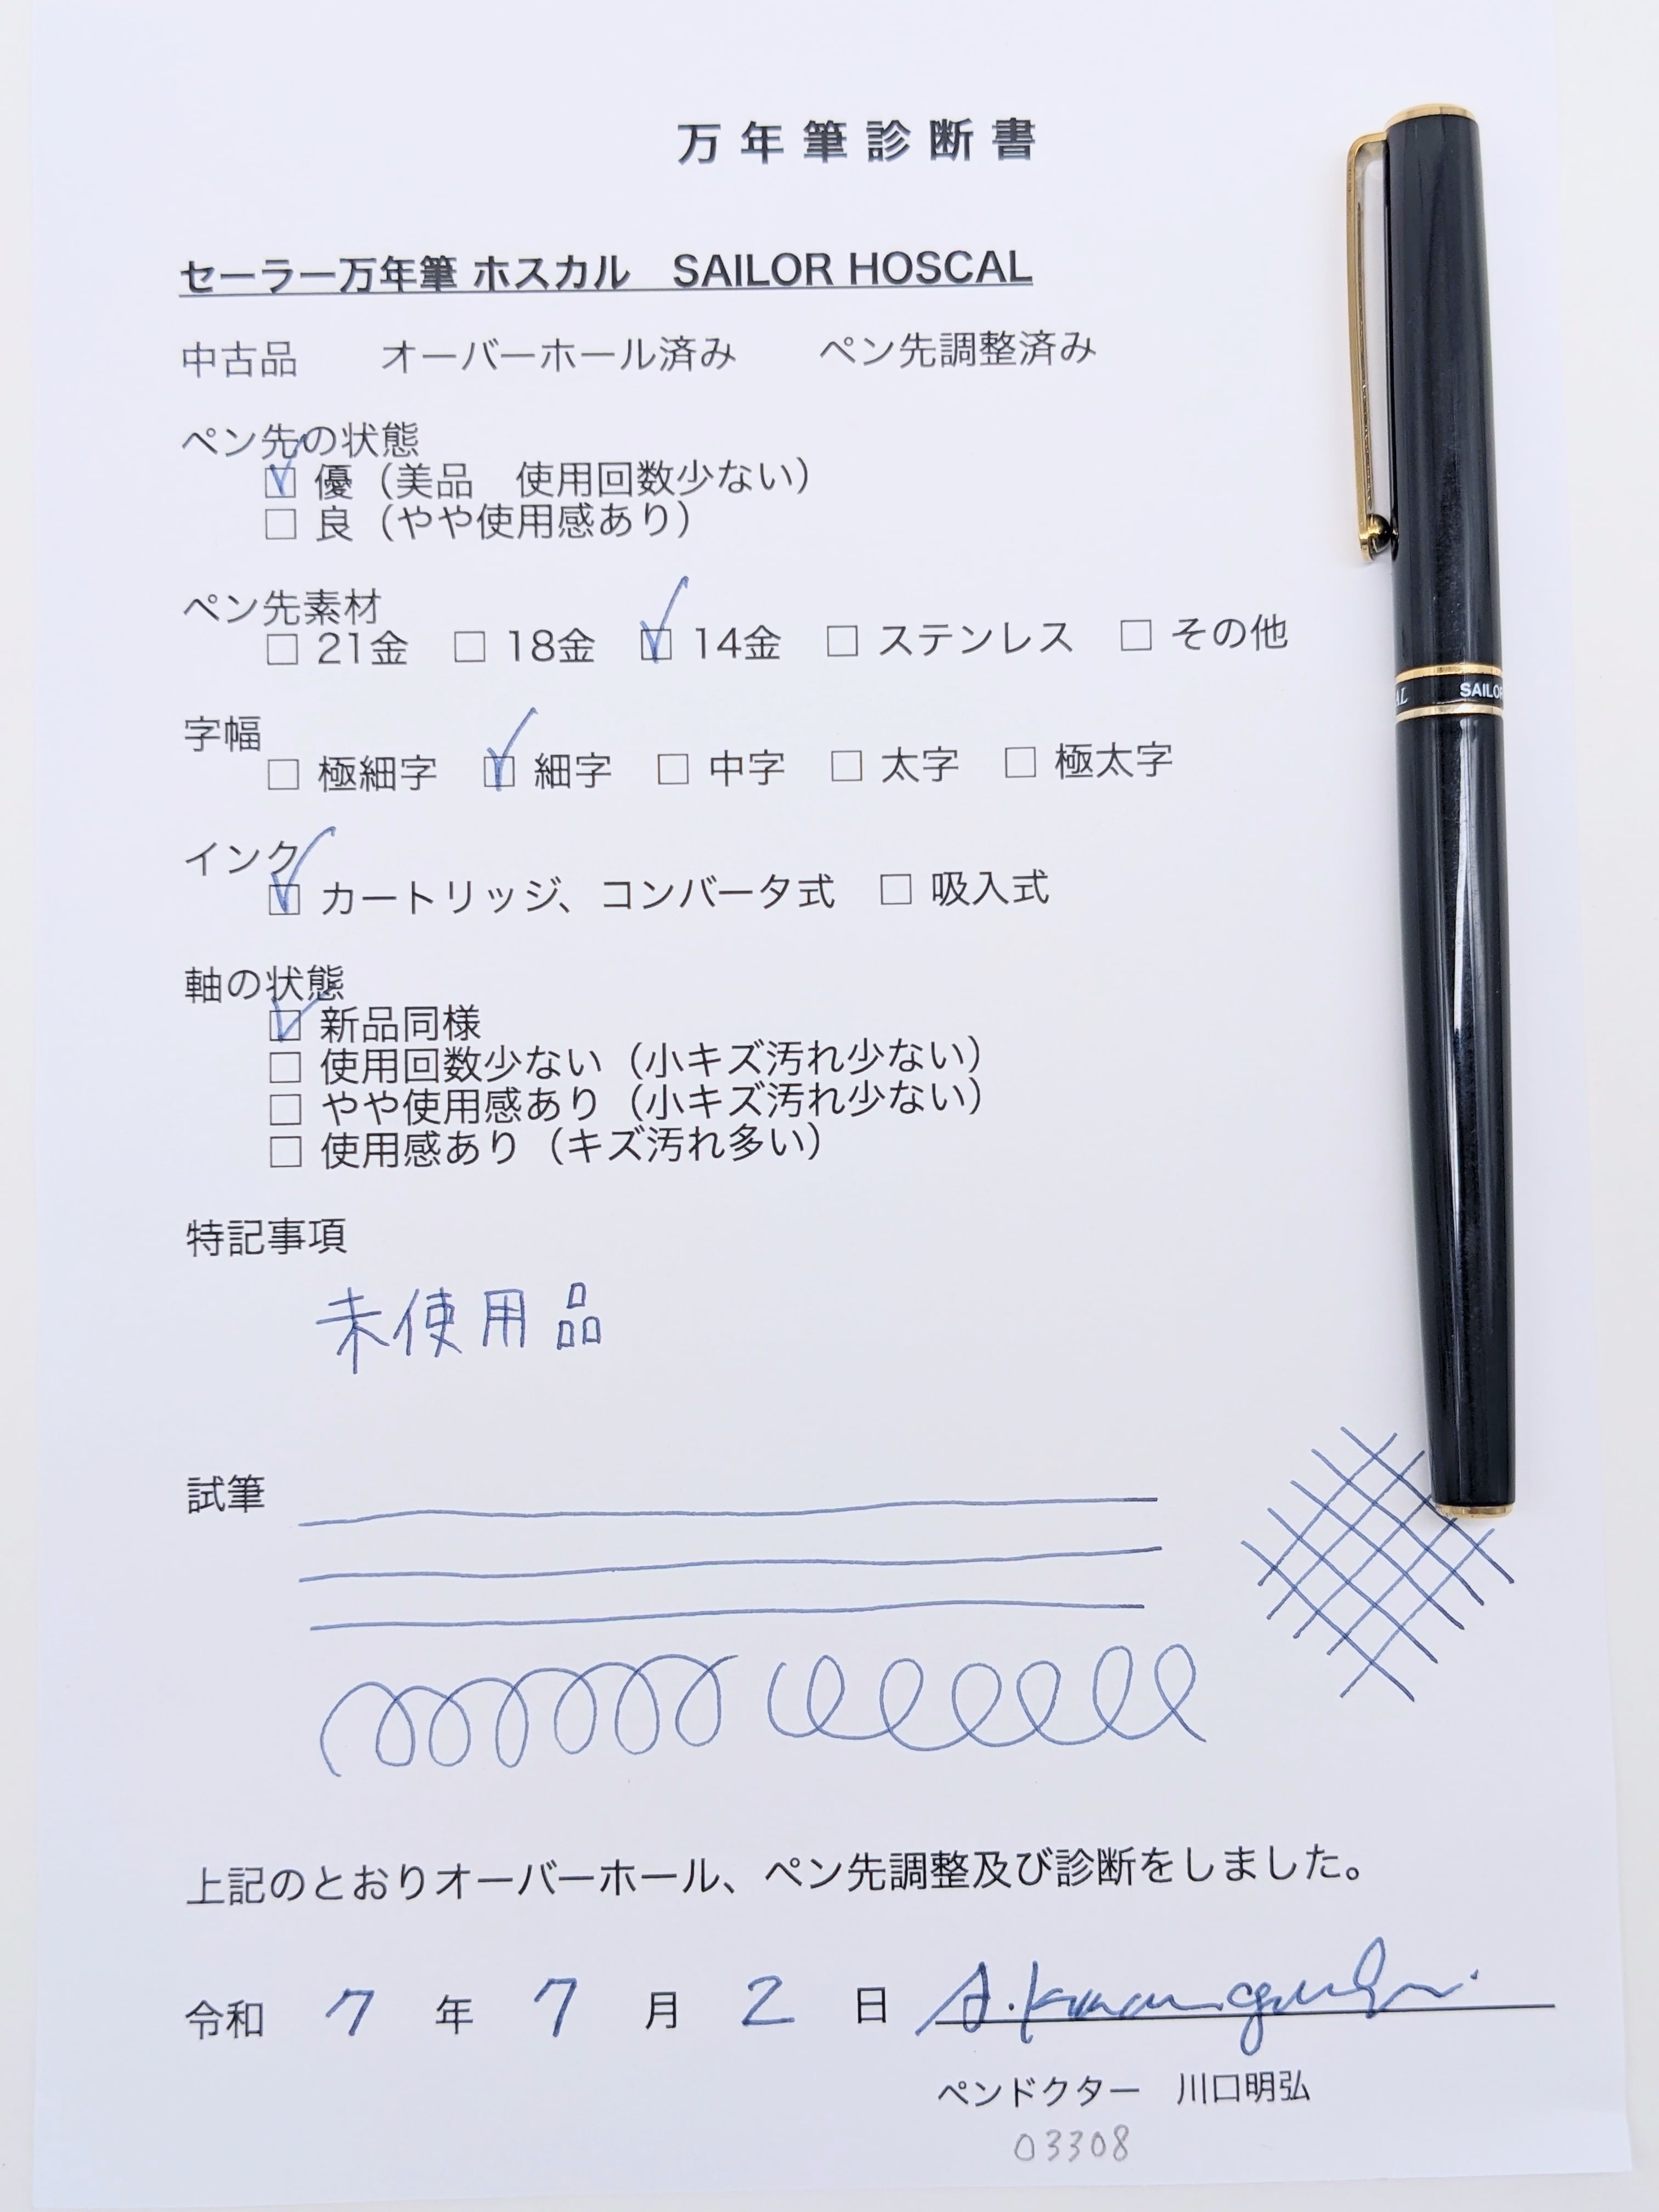 万年筆診断書
セーラー万年筆 ホスカル　SAILOR HOSCAL
中古品　　オーバーホール済み　　ペン先調整済み
ペン先の状態
☑ 優（美品　使用回数少ない）
□ 良（やや使用感あり）
ペン先素材
□ 21金　□ 18金　☑ 14金　□ ステンレス　□ その他
AL　SAILOR
字幅
□ 極細字　☑ 細字　□ 中字　□ 太字　□ 極太字
インク
☑ カートリッジ、コンバータ式　□ 吸入式
軸の状態
☑ 新品同様
□ 使用回数少ない（小キズ汚れ少ない）
□ やや使用感あり（小キズ汚れ少ない）
□ 使用感あり（キズ汚れ多い）
特記事項
未使用品
試筆
上記のとおりオーバーホール、ペン先調整及び診断をしました。
令和　7　年　7　月　2　日　A.Kawaguchi
ペンドクター　川口明弘
03308